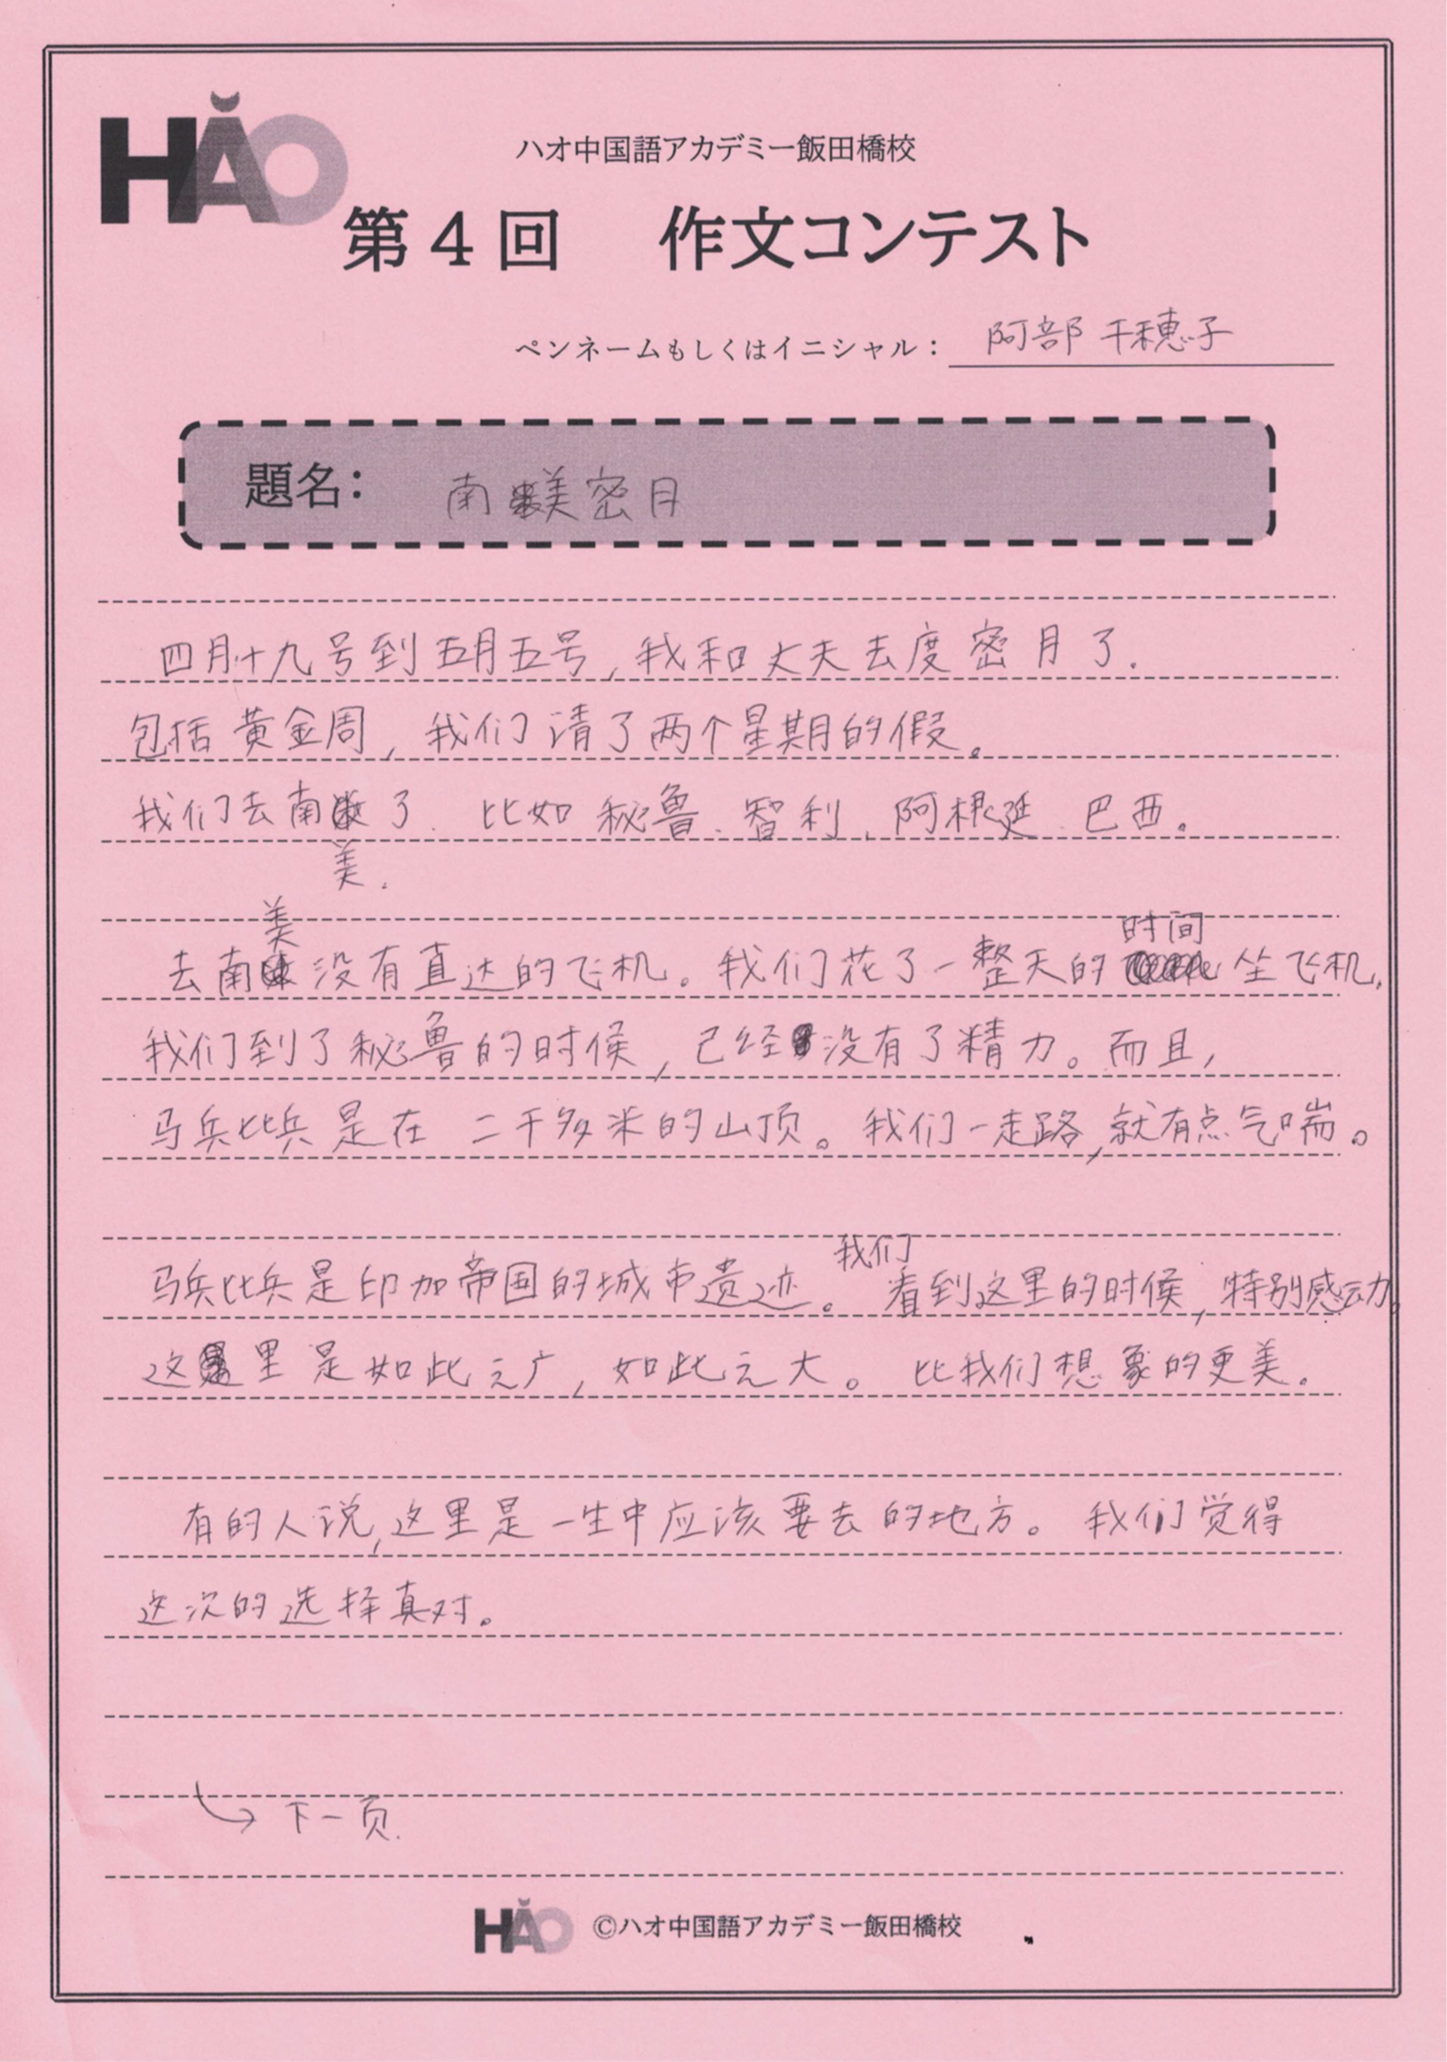 HǍO
ハオ中国語アカデミー飯田橋校
第4回 作文コンテスト
ペンネームもしくはイニシャル： 阿部 千穂子
題名： 南美密月
四月十九号到五月五号,我和丈夫去度密月了.
包括黄金周,我们请了两个星期的假。
我们去南美了.比如秘鲁、智利、阿根廷、巴西。
去南美没有直达的飞机。我们花了一整天的时间坐飞机,
我们到了秘鲁的时候,已经没有了精力。而且,
马兵比兵是在二千多米的山顶。我们一走路,就有点气喘。
马兵比兵是印加帝国的城市遗迹。我们看到这里的时候,特别感动。
这里是如此之广,如此之大。比我们想象的更美.
有的人说,这里是一生中应该要去的地方。我们觉得
这次的选择真对。
下一页.
HǍO ©ハオ中国語アカデミー飯田橋校